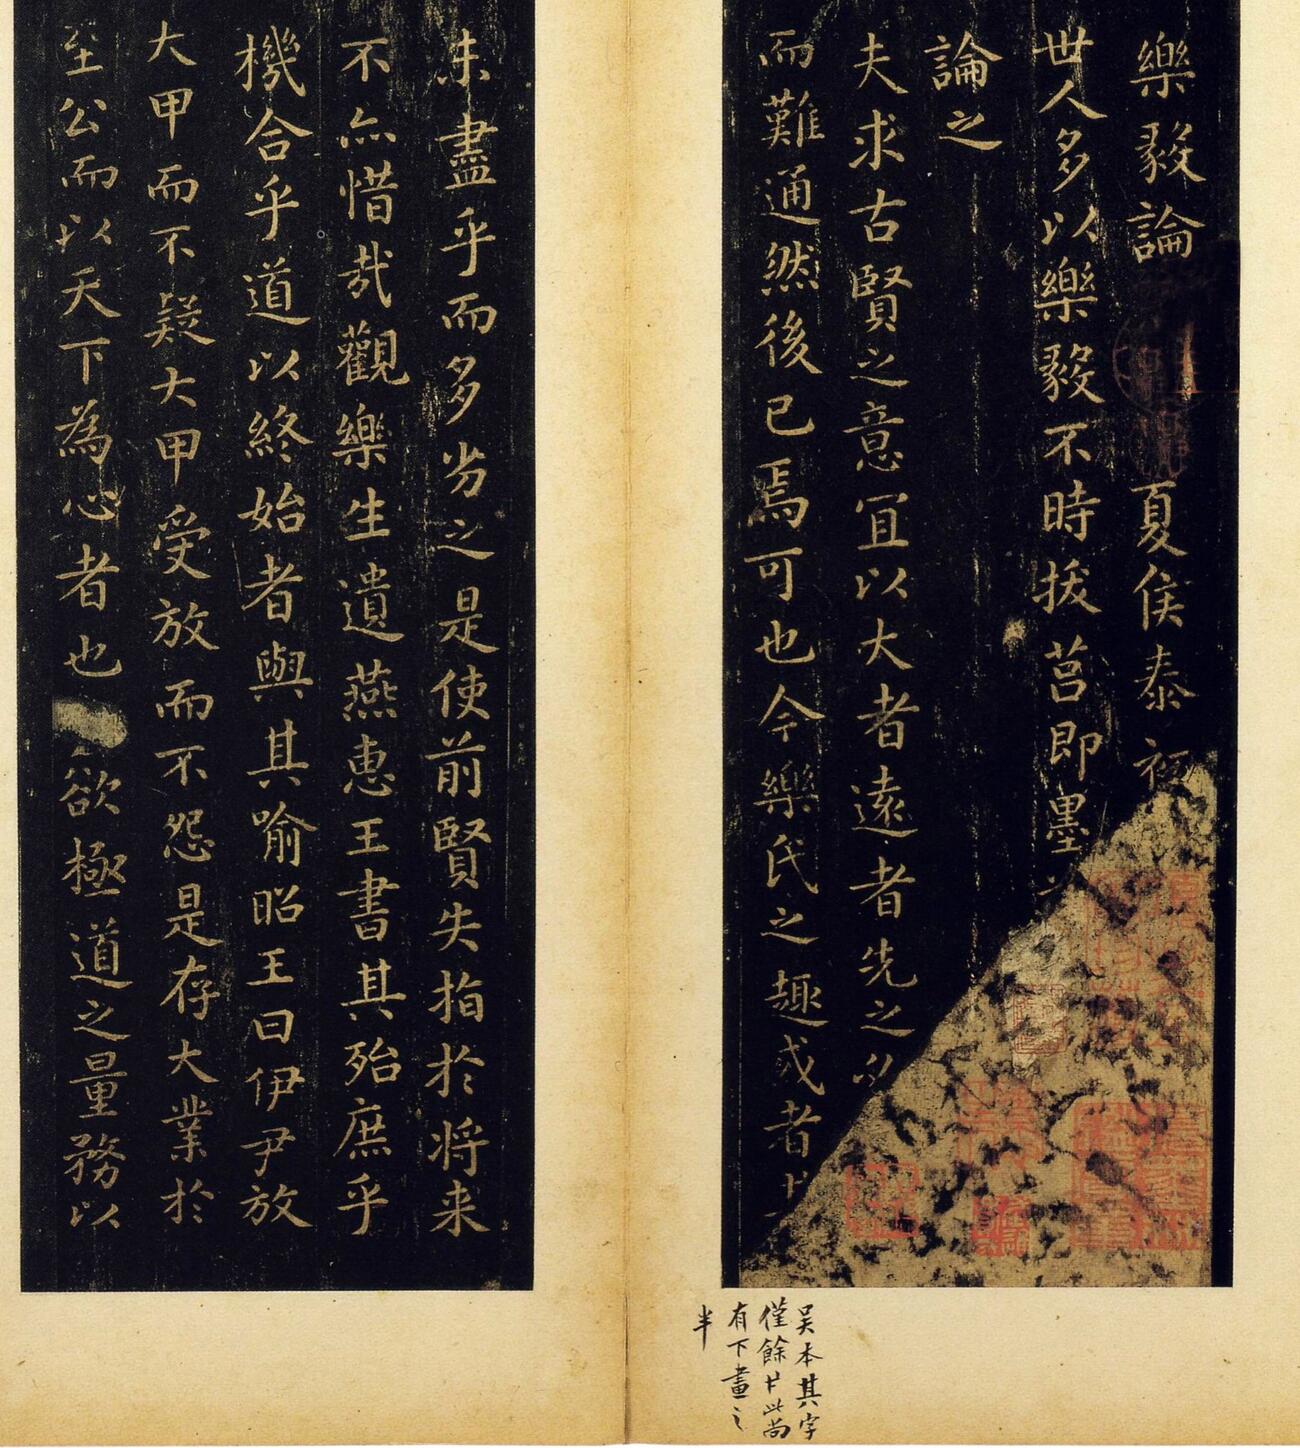 樂毅論 夏侯泰初
世人多以樂毅不時拔莒即墨
論之
夫求古賢之意宜以大者遠者先之以
而難通然後已焉可也今樂氏之趣或者其
未盡乎而多劣之是使前賢失指於将来
不亦惜哉觀樂生遺燕惠王書其殆庶乎
機合乎道以終始者與其喻昭王曰伊尹放
大甲而不疑大甲受放而不怨是存大業於
至公而以天下為心者也 欲極道之量務以
吴本其字
僅餘 此尚
有下畫之
半